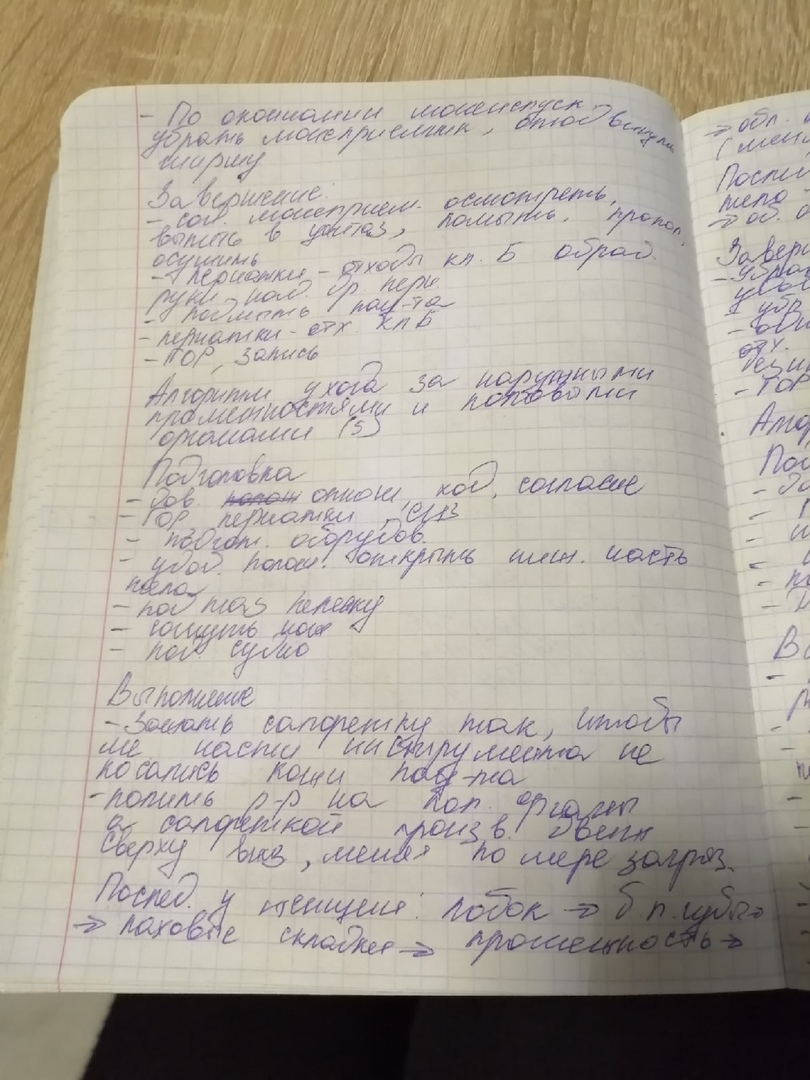 - По окончании мочеиспуск.
убрать мочеприемник, отодвинуть
ширму
Завершение:
- сод. мочеприем. осмотреть,
вылить в унитаз, помыть, пропол.,
осушить
- перчатки - отходы кл. Б обраб.
руки над. др перч.
- подмыть пац-та
- перчатки - отх кл Б
- ГОР, запись
Алгоритм ухода за наружными
промежностями и половыми
органами (5)
Подготовка
- дов. отнош ход, согласие
- ГОР перчатки, СИЗ
- подгот. оборудов.
- удоб. полож. открыть ниж. часть
тела
- под таз пеленку
- согнуть ноги
- под. судно
Выполнение
- Зажать салфетку так, чтобы
части инструмента не
косались кожи пац-та
- полить р-р на пол. органы
а салфеткой произв. движ
сверху вниз, меняя по мере загряз.
Послед. у женщин: лобок → б.п.губы →
→ паховые складки → промежность →
→ обл.
Посл
тело
→ об.
Заверш
- убра
- убр
отх.
- ГОР
Алгор
Под